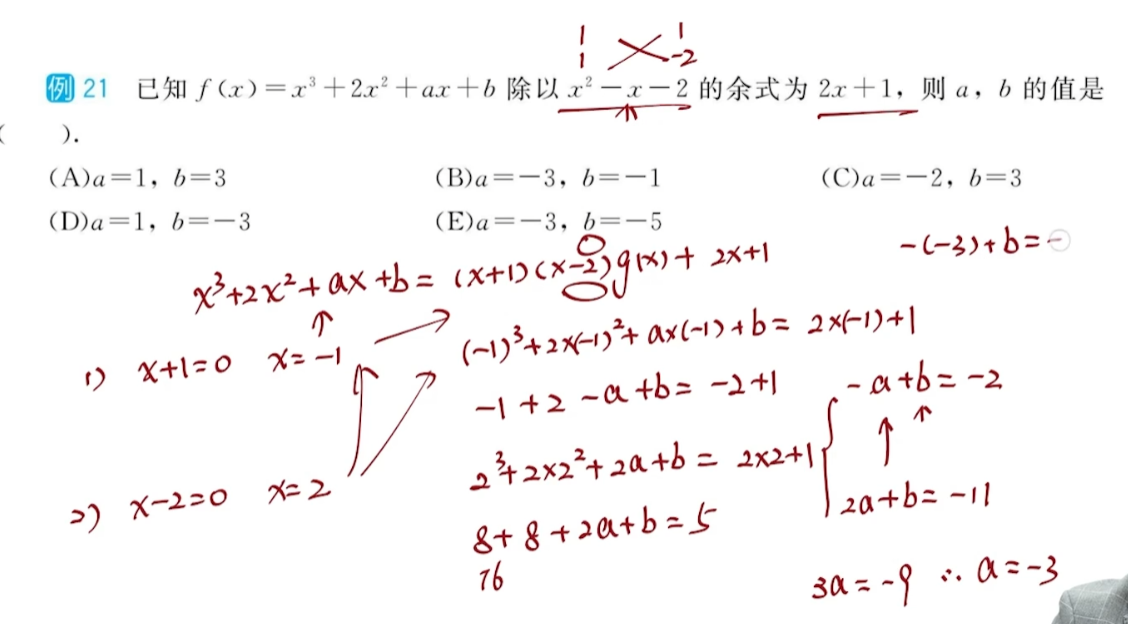 1 1
1 -2
例 21 已知 f(x)=x³+2x²+ax+b 除以 x²-x-2 的余式为 2x+1, 则 a, b 的值是
( ).
(A)a=1, b=3 (B)a=-3, b=-1 (C)a=-2, b=3
(D)a=1, b=-3 (E)a=-3, b=-5
-(-3)+b=-
x³+2x²+ax+b=(x+1)(x-2)g(x)+2x+1
0
1) x+1=0 x=-1
(-1)³+2×(-1)²+a×(-1)+b=2×(-1)+1
-1+2-a+b=-2+1
-a+b=-2
2) x-2=0 x=2
2³+2×2²+2a+b=2×2+1
2a+b=-11
8+8+2a+b=5
16
3a=-9 ∴a=-3